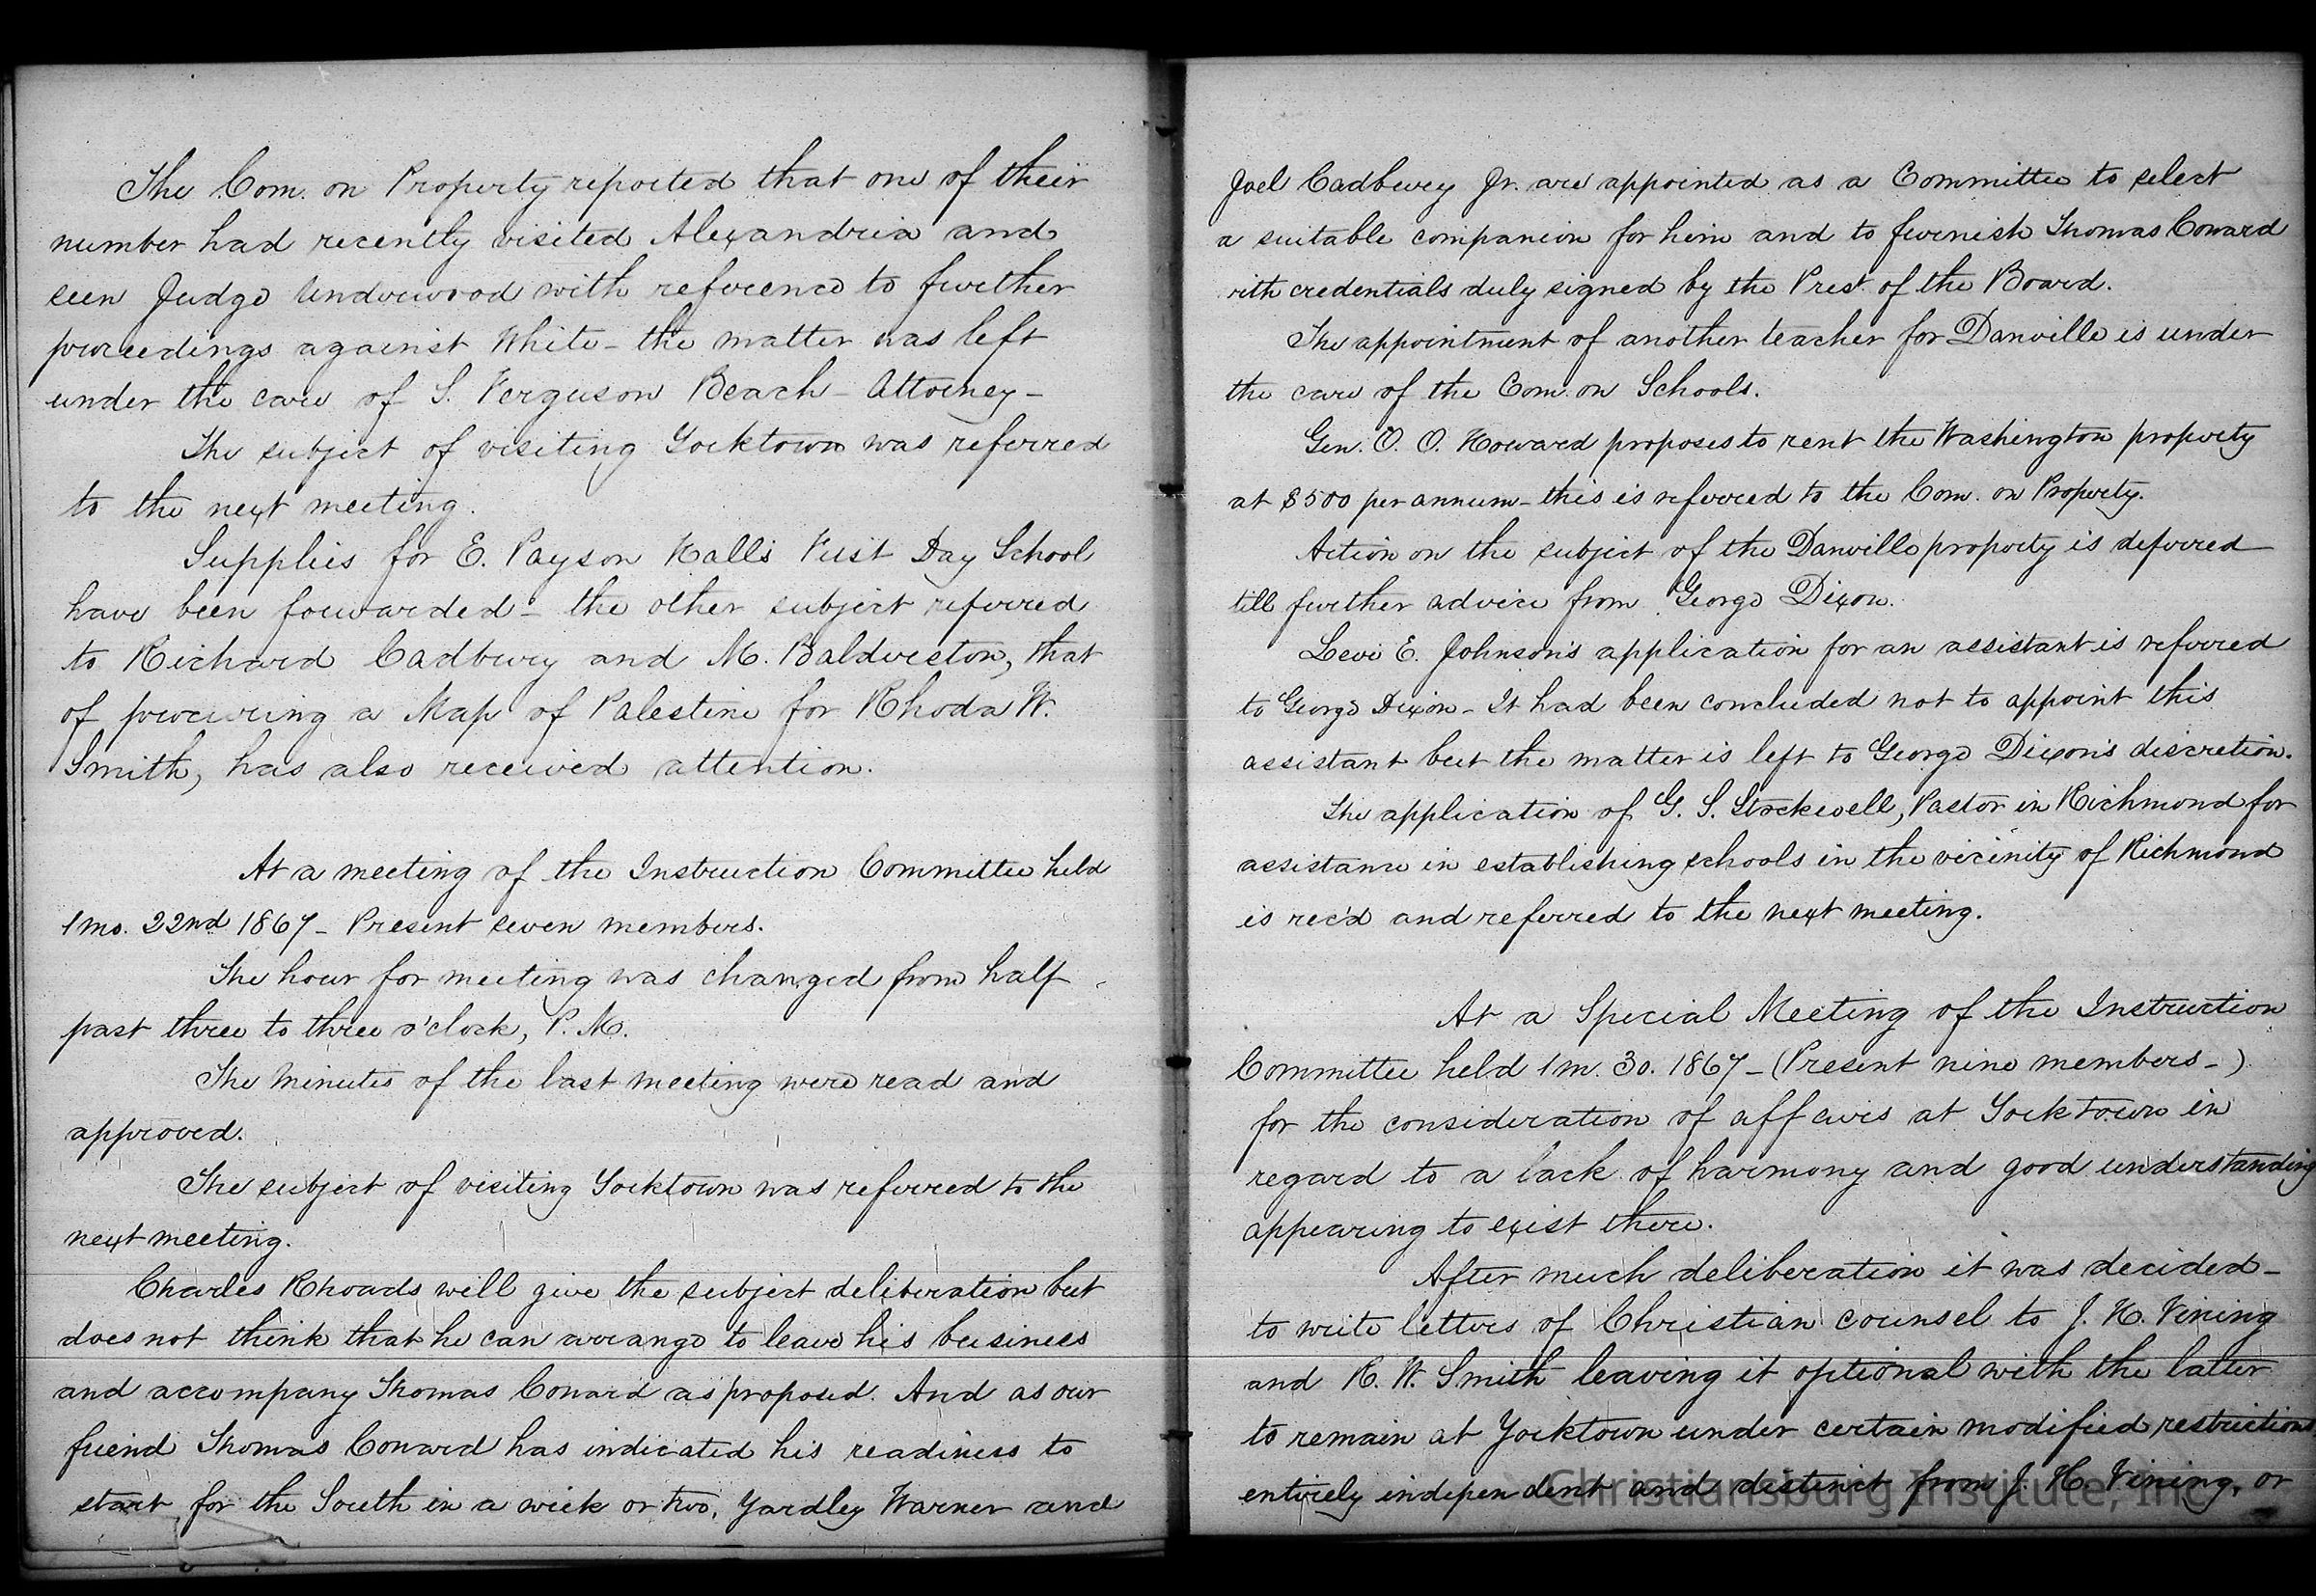 The Com. on Property reported that one of their
number had recently visited Alexandria and
seen Judge Underwood with reference to further
proceedings against White - the matter was left
under the care of S. Ferguson Beach - Attorney -
The subject of visiting Yorktown was referred
to the next meeting.
Supplies for E. Payson Hall's First Day School
have been forwarded - the other subject referred
to Richard Cadbury and M. Balderston, that
of procuring a Map of Palestine for Rhoda W.
Smith, has also received attention.
At a meeting of the Instruction Committee held
1 mo. 22nd 1867 - Present seven members.
The hour for meeting was changed from half
past three to three o'clock, P. M.
The minutes of the last meeting were read and
approved.
The subject of visiting Yorktown was referred to the
next meeting.
Charles Rhoads will give the subject deliberation but
does not think that he can arrange to leave his business
and accompany Thomas Conard as proposed. And as our
friend Thomas Conard has indicated his readiness to
start for the South in a week or two, Yardley Warner and
Joel Cadbury Jr. are appointed as a Committee to select
a suitable companion for him and to furnish Thomas Conard
with credentials duly signed by the Prest. of the Board.
The appointment of another teacher for Danville is under
the care of the Com. on Schools.
Gen. O. O. Howard proposes to rent the Washington property
at $500 per annum - this is referred to the Com. on Property.
Action on the subject of the Danville property is deferred
till further advice from George Dixon.
Levi E. Johnson's application for an assistant is referred
to George Dixon - It had been concluded not to appoint this
assistant but the matter is left to George Dixon's discretion.
The application of G. S. Stockwell, Pastor in Richmond for
assistance in establishing schools in the vicinity of Richmond
is rec'd and referred to the next meeting.
At a Special Meeting of the Instruction
Committee held 1 m. 30. 1867 - (Present nine members - )
for the consideration of affairs at Yorktown in
regard to a lack of harmony and good understanding
appearing to exist there.
After much deliberation it was decided -
to write letters of Christian counsel to J. H. Vining
and R. W. Smith leaving it optional with the latter
to remain at Yorktown under certain modified restrictions
entirely independent and distinct from J. H. Vining, or
Christiansburg Institute, Inc